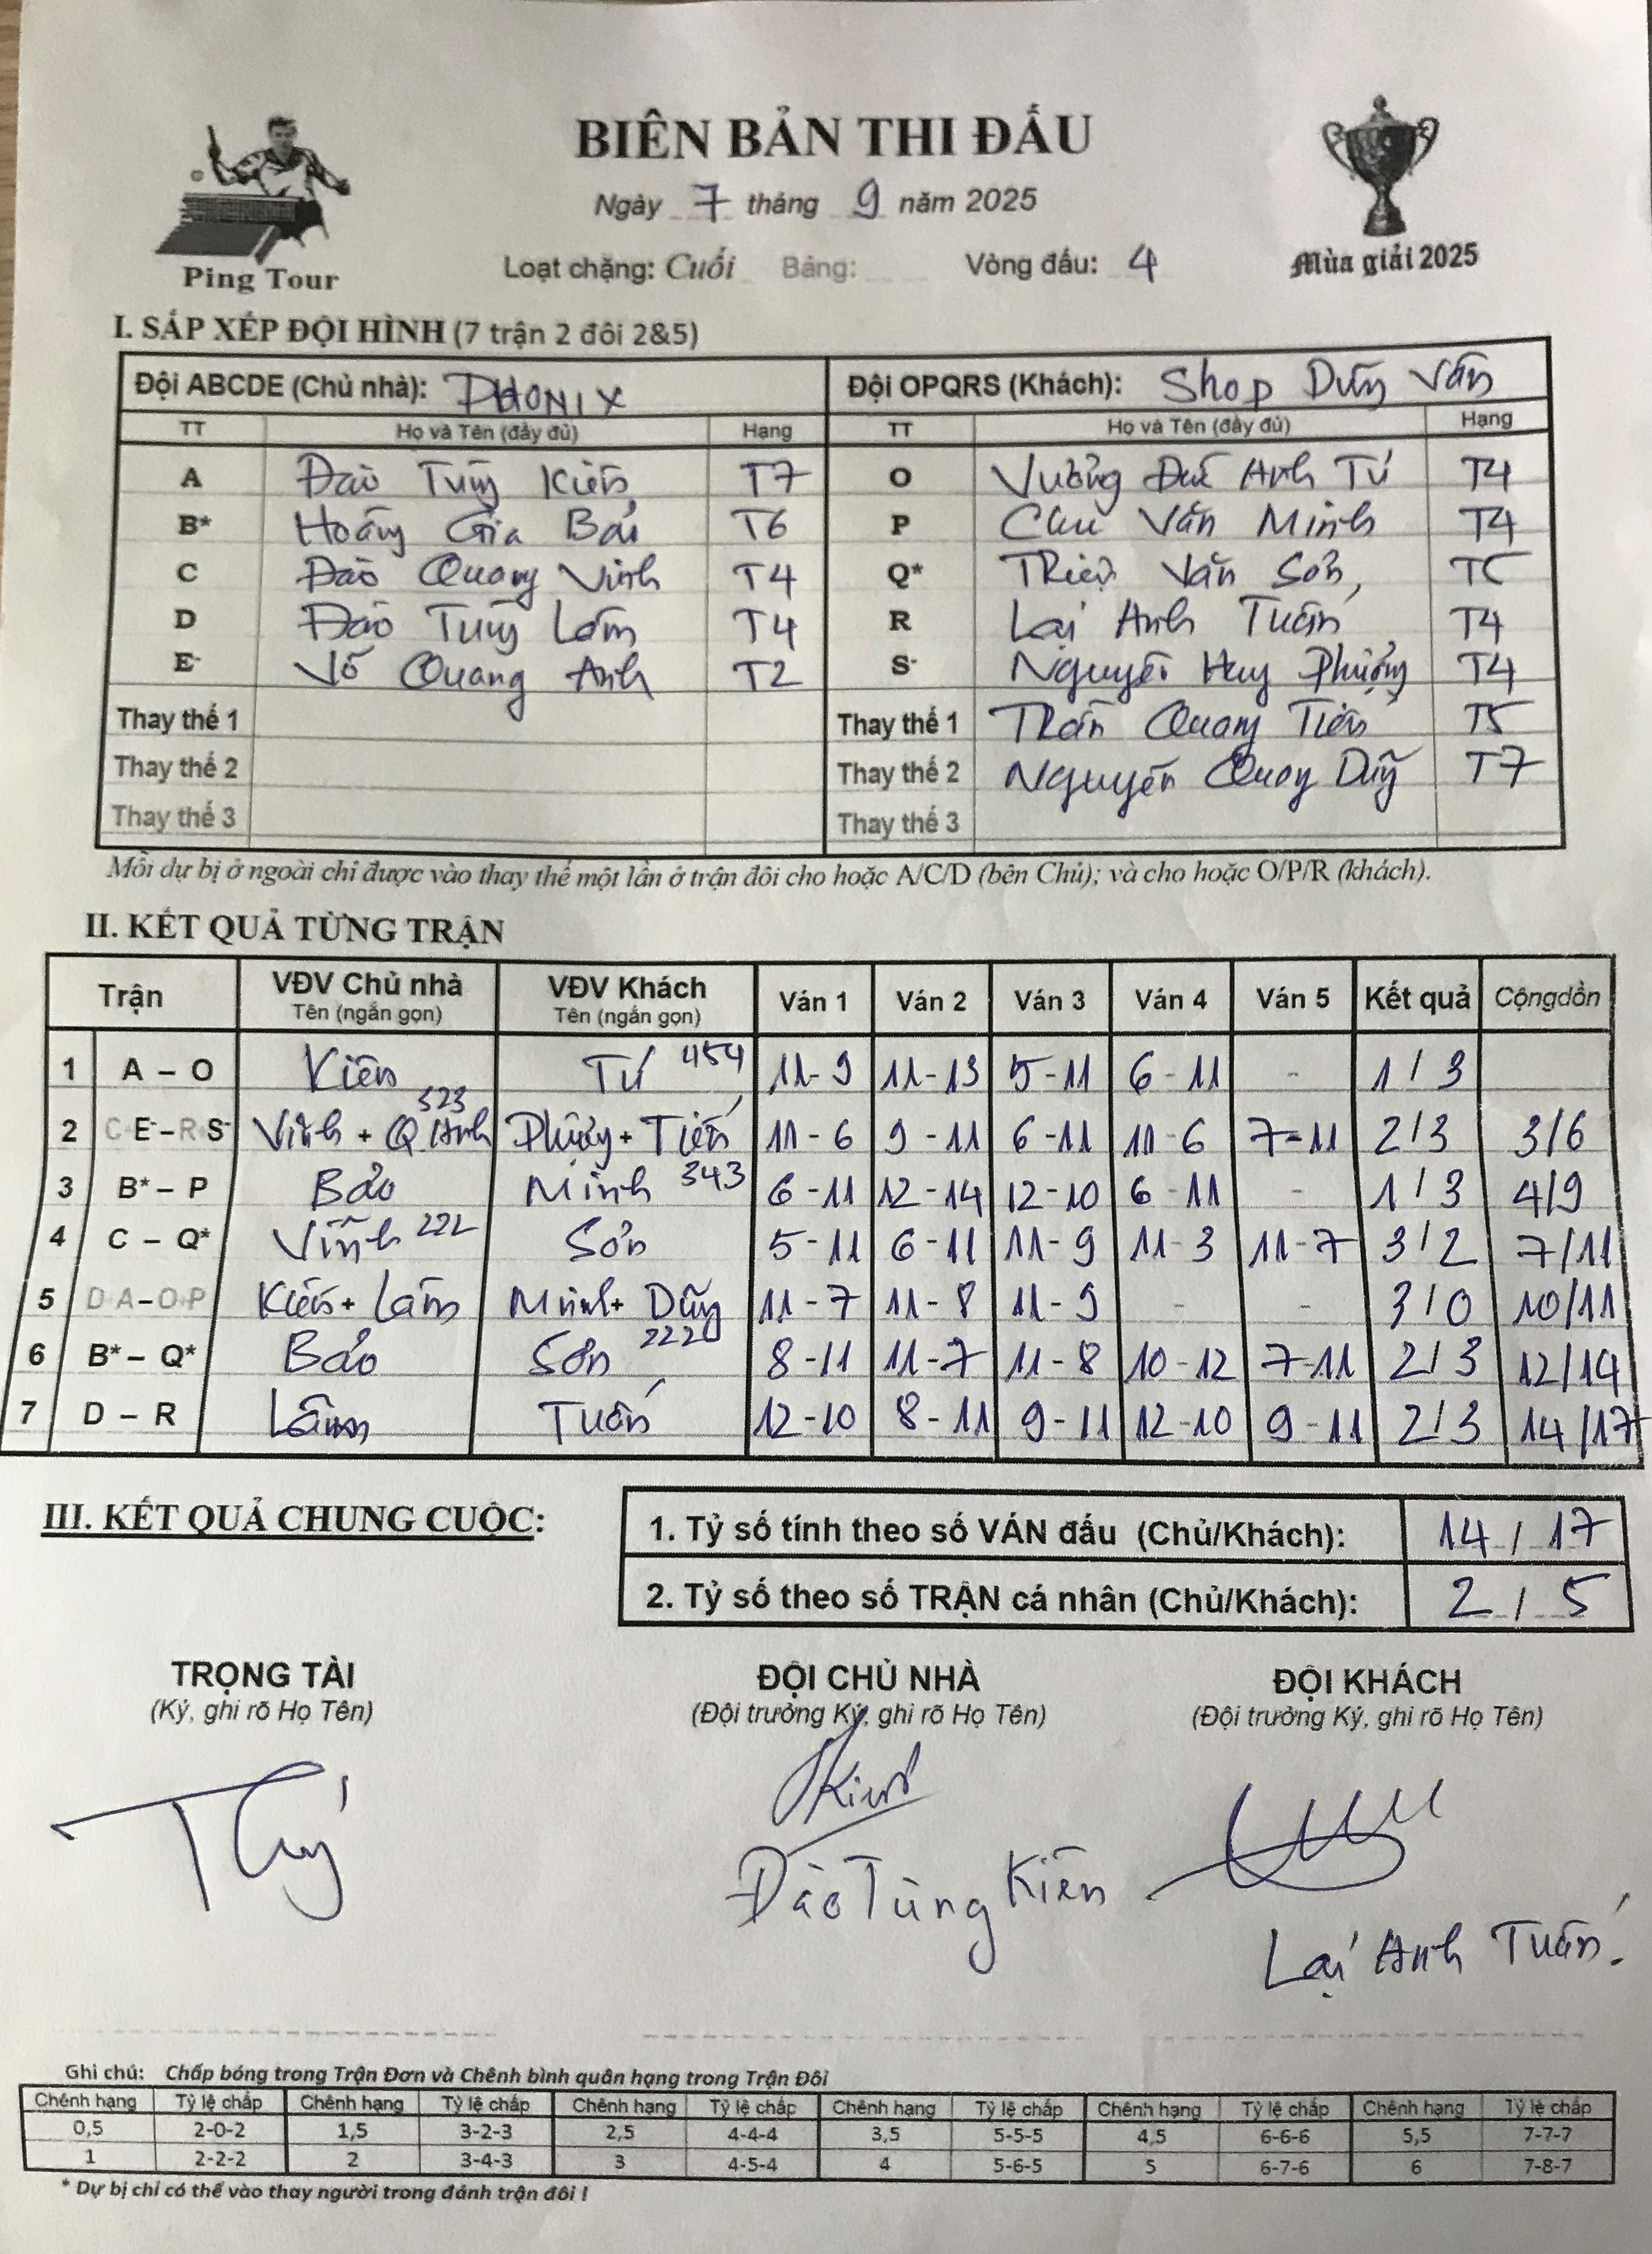 BIÊN BẢN THI ĐẤU
Ngày 7 tháng 9 năm 2025
Ping Tour
Loạt chặng: Cuối Bảng: Vòng đấu: 4
Mùa giải 2025
I. SẮP XẾP ĐỘI HÌNH (7 trận 2 đôi 2&5)
Đội ABCDE (Chủ nhà): PHONIX Đội OPQRS (Khách): Shop Dũng Văn
TT Họ và Tên (đầy đủ) Hạng TT Họ và Tên (đầy đủ) Hạng
A Đào Tùng Kiên T7 O Vương Đức Anh Tú T4
B* Hoàng Gia Bảo T6 P Chu Văn Minh T4
C Đào Quang Vinh T4 Q* Triệu Văn Sơn, T5
D Đào Tùng Lâm T4 R Lại Anh Tuấn T4
E- Võ Quang Anh T2 S- Nguyễn Huy Phương T4
Thay thế 1 Thay thế 1 Trần Quang Tiến T5
Thay thế 2 Thay thế 2 Nguyễn Quang Dũng T7
Thay thế 3 Thay thế 3
Mỗi dự bị ở ngoài chỉ được vào thay thế một lần ở trận đôi cho hoặc A/C/D (bên Chủ); và cho hoặc O/P/R (khách).
II. KẾT QUẢ TỪNG TRẬN
Trận VĐV Chủ nhà VĐV Khách Ván 1 Ván 2 Ván 3 Ván 4 Ván 5 Kết quả Cộngdồn
Tên (ngắn gọn) Tên (ngắn gọn)
1 A – O Kiên Tú 454 11-9 11-13 5-11 6-11 - 1/3
2 C+E- – R+S- Vinh + Q Anh 323 Phương + Tiến 11-6 9-11 6-11 11-6 7-11 2/3 3/6
3 B* – P Bảo Minh 343 6-11 12-14 12-10 6-11 - 1/3 4/9
4 C – Q* Vinh 222 Sơn 5-11 6-11 11-9 11-3 11-7 3/2 7/11
5 D+A – O+P Kiên + Lâm Minh + Dũng 11-7 11-8 11-9 - - 3/0 10/11
6 B* – Q* Bảo Sơn 222 8-11 11-7 11-8 10-12 7-11 2/3 12/14
7 D – R Lâm Tuấn 12-10 8-11 9-11 12-10 9-11 2/3 14/17
III. KẾT QUẢ CHUNG CUỘC:
1. Tỷ số tính theo số VÁN đấu (Chủ/Khách): 14 / 17
2. Tỷ số theo số TRẬN cá nhân (Chủ/Khách): 2 / 5
TRỌNG TÀI ĐỘI CHỦ NHÀ ĐỘI KHÁCH
(Ký, ghi rõ Họ Tên) (Đội trưởng Ký, ghi rõ Họ Tên) (Đội trưởng Ký, ghi rõ Họ Tên)
Đào Tùng Kiên
Lại Anh Tuấn.
Ghi chú: Chấp bóng trong Trận Đơn và Chênh bình quân hạng trong Trận Đôi
Chênh hạng Tỷ lệ chấp Chênh hạng Tỷ lệ chấp Chênh hạng Tỷ lệ chấp Chênh hạng Tỷ lệ chấp Chênh hạng Tỷ lệ chấp Chênh hạng Tỷ lệ chấp
0,5 2-0-2 1,5 3-2-3 2,5 4-4-4 3,5 5-5-5 4,5 6-6-6 5,5 7-7-7
1 2-2-2 2 3-4-3 3 4-5-4 4 5-6-5 5 6-7-6 6 7-8-7
* Dự bị chỉ có thể vào thay người trong đánh trận đôi !